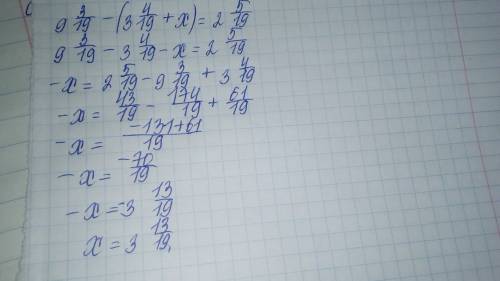 9 3/19 - (3 4/19 + x) = 2 5/19
9 3/19 - 3 4/19 - x = 2 5/19
-x = 2 5/19 - 9 3/19 + 3 4/19
-x = 43/19 - 174/19 + 61/19
-x = (-131+61)/19
-x = -70/19
-x = -3 13/19
x = 3 13/19,